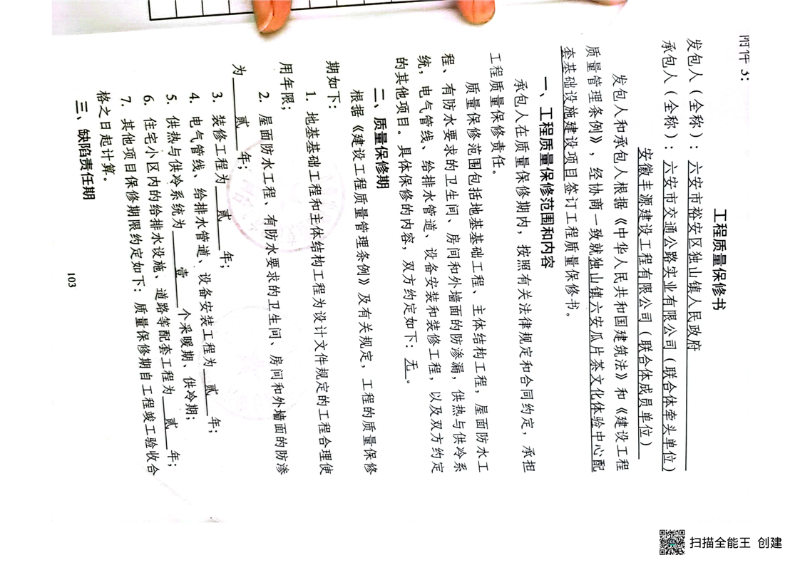 附件3：
工程质量保修书
发包人（全称）：六安市裕安区独山镇人民政府
承包人（全称）：六安市交通公路实业有限公司（联合体牵头单位）
安徽丰源建设工程有限公司（联合体成员单位）
发包人和承包人根据《中华人民共和国建筑法》和《建设工程
质量管理条例》，经协商一致就独山镇六安瓜片茶文化体验中心配
套基础设施建设项目签订工程质量保修书。
一、工程质量保修范围和内容
承包人在质量保修期内，按照有关法律规定和合同约定，承担
工程质量保修责任。
质量保修范围包括地基基础工程、主体结构工程，屋面防水工
程、有防水要求的卫生间、房间和外墙面的防渗漏，供热与供冷系
统，电气管线、给排水管道、设备安装和装修工程，以及双方约定
的其他项目。具体保修的内容，双方约定如下：无。
二、质量保修期
根据《建设工程质量管理条例》及有关规定，工程的质量保修
期如下：
1. 地基基础工程和主体结构工程为设计文件规定的工程合理使
用年限；
2. 屋面防水工程、有防水要求的卫生间、房间和外墙面的防渗
为 贰 年；
3. 装修工程为 贰 年；
4. 电气管线、给排水管道、设备安装工程为 贰 年；
5. 供热与供冷系统为 壹 个采暖期、供冷期；
6. 住宅小区内的给排水设施、道路等配套工程为 贰 年；
7. 其他项目保修期限约定如下：质量保修期自工程竣工验收合
格之日起计算。
三、缺陷责任期
103
扫描全能王 创建